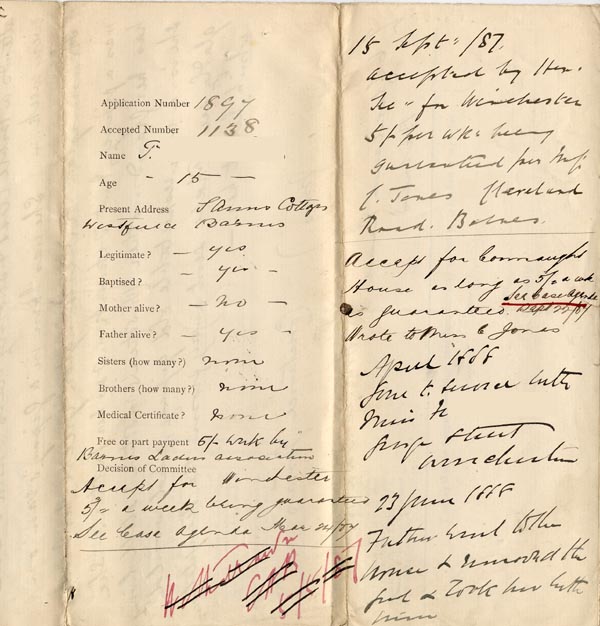 Application Number 1897
Accepted Number 1138
Name F.
Age - 15 -
Present Address Cottages
Westfield Barnes
Legitimate? - yes
Baptised? - yes -
Mother alive? - no -
Father alive? - yes -
Sisters (how many?) none
Brothers (how many?) none
Medical Certificate? none
Free or part payment 5/- week by
Barnes Ladies association
Decision of Committee
Accept for Winchester
5/- a week being guaranteed
See Case Agenda
15 Sept: /87.
accepted by Hon.
Sec. for Winchester
5/- per wk: being
guaranteed per Miss
C. Jones Cleveland
Road. Barnes.
Accept for Connaught
House as long as 5/- a wk
is guaranteed. See Case Agenda Sept 22/87
Wrote to Miss C Jones
April 1888
Gone to service with
Miss
George Street
Winchester
23 June 1888
Father went to the
House & removed the
girl & took her with
him